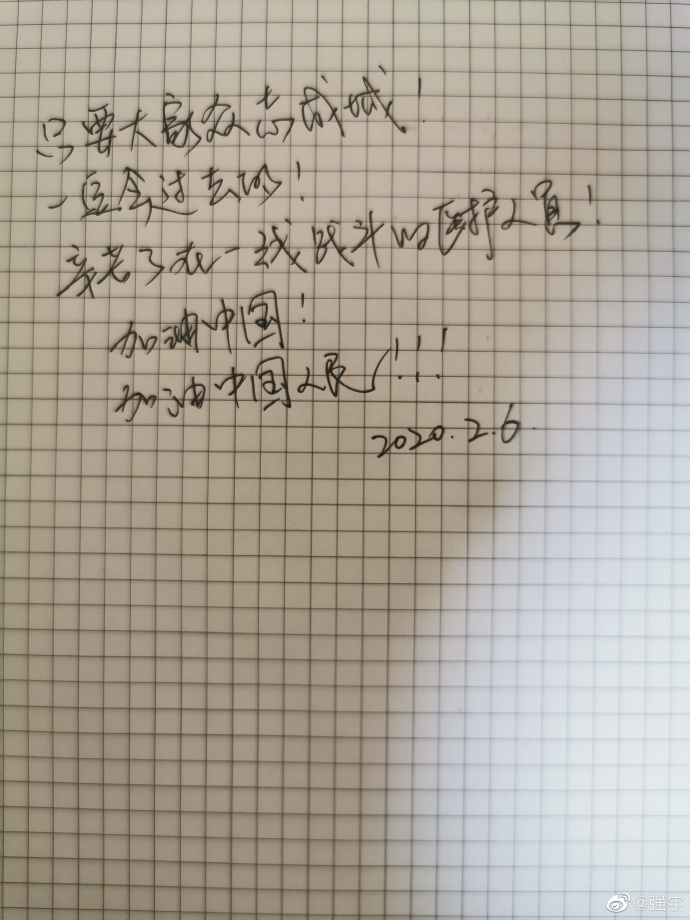 只要大家众志成城!
一定会过去的!
辛苦了在一线战斗的医护人员!
加油中国!
加油中国人民!!!
2020.2.6.
@强宇